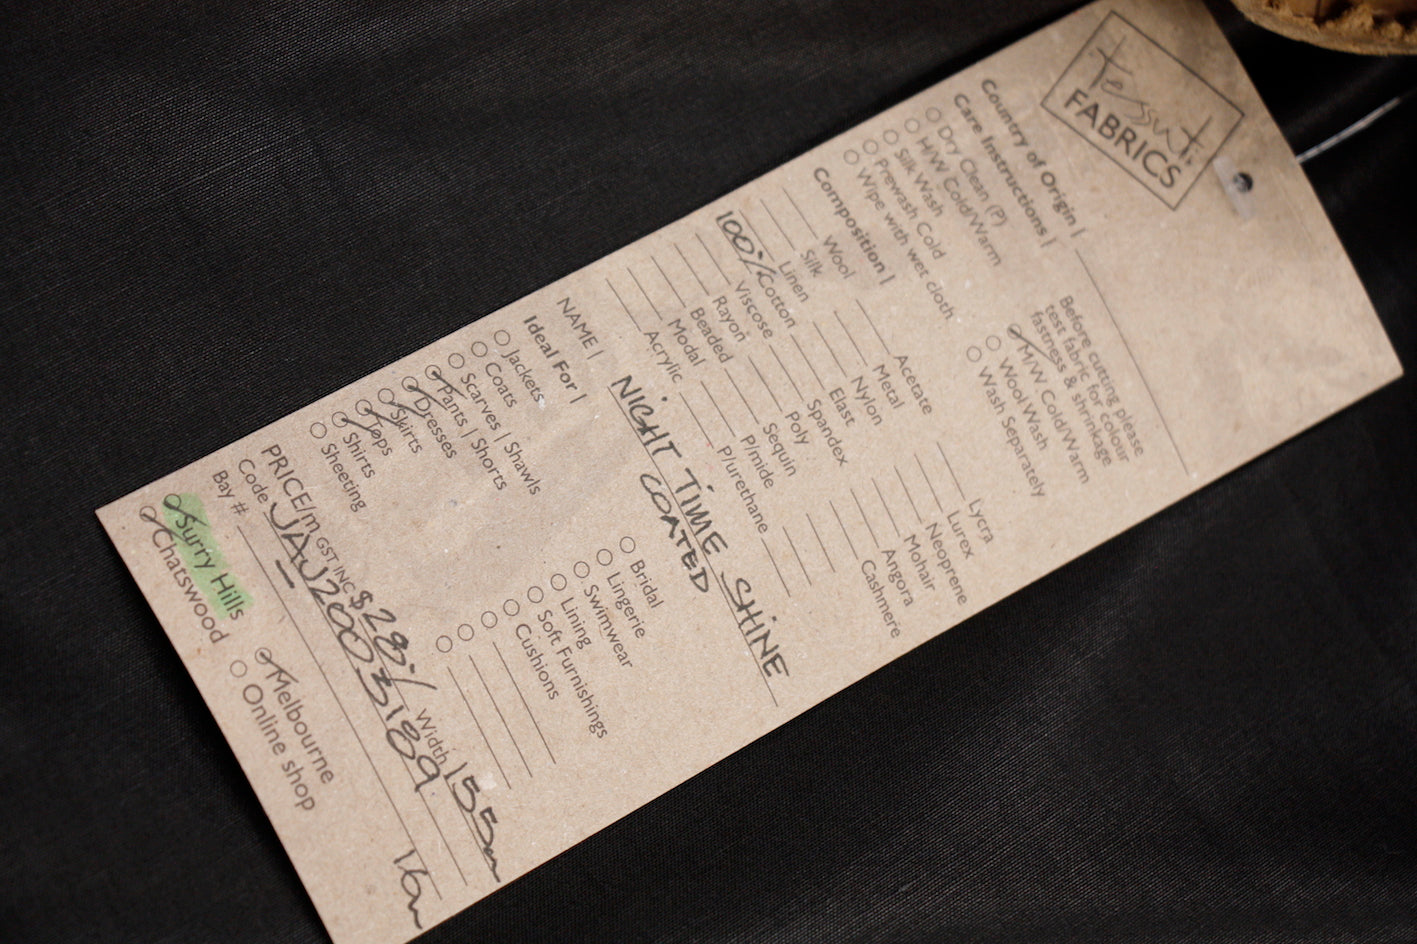 tessuti
FABRICS
Country of Origin |
Care Instructions |
Dry Clean (P)
H/W Cold/Warm
Silk Wash
Prewash Cold
Wipe with wet cloth
Before cutting please
test fabric for colour
fastness & shrinkage
M/W Cold/Warm
Wool Wash
Wash Separately
Composition |
Wool
Silk
Linen
100% Cotton
Viscose
Rayon
Beaded
Modal
Acrylic
Acetate
Metal
Nylon
Elast
Spandex
Poly
Sequin
P/mide
P/urethane
Lycra
Lurex
Neoprene
Mohair
Angora
Cashmere
NAME | NIGHT TIME SHINE
COATED
Ideal For |
Jackets
Coats
Scarves | Shawls
Pants | Shorts
Dresses
Skirts
Tops
Shirts
Sheeting
Bridal
Lingerie
Swimwear
Lining
Soft Furnishings
Cushions
PRICE/m GST INC $28 Width 155m
Code JAU2003189
Bay # 16m
Surry Hills
Chatswood
Melbourne
Online shop